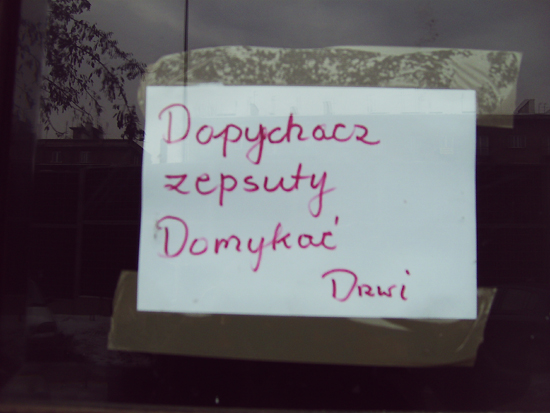 Dopychacz
zepsuty
Domykać
Drzwi